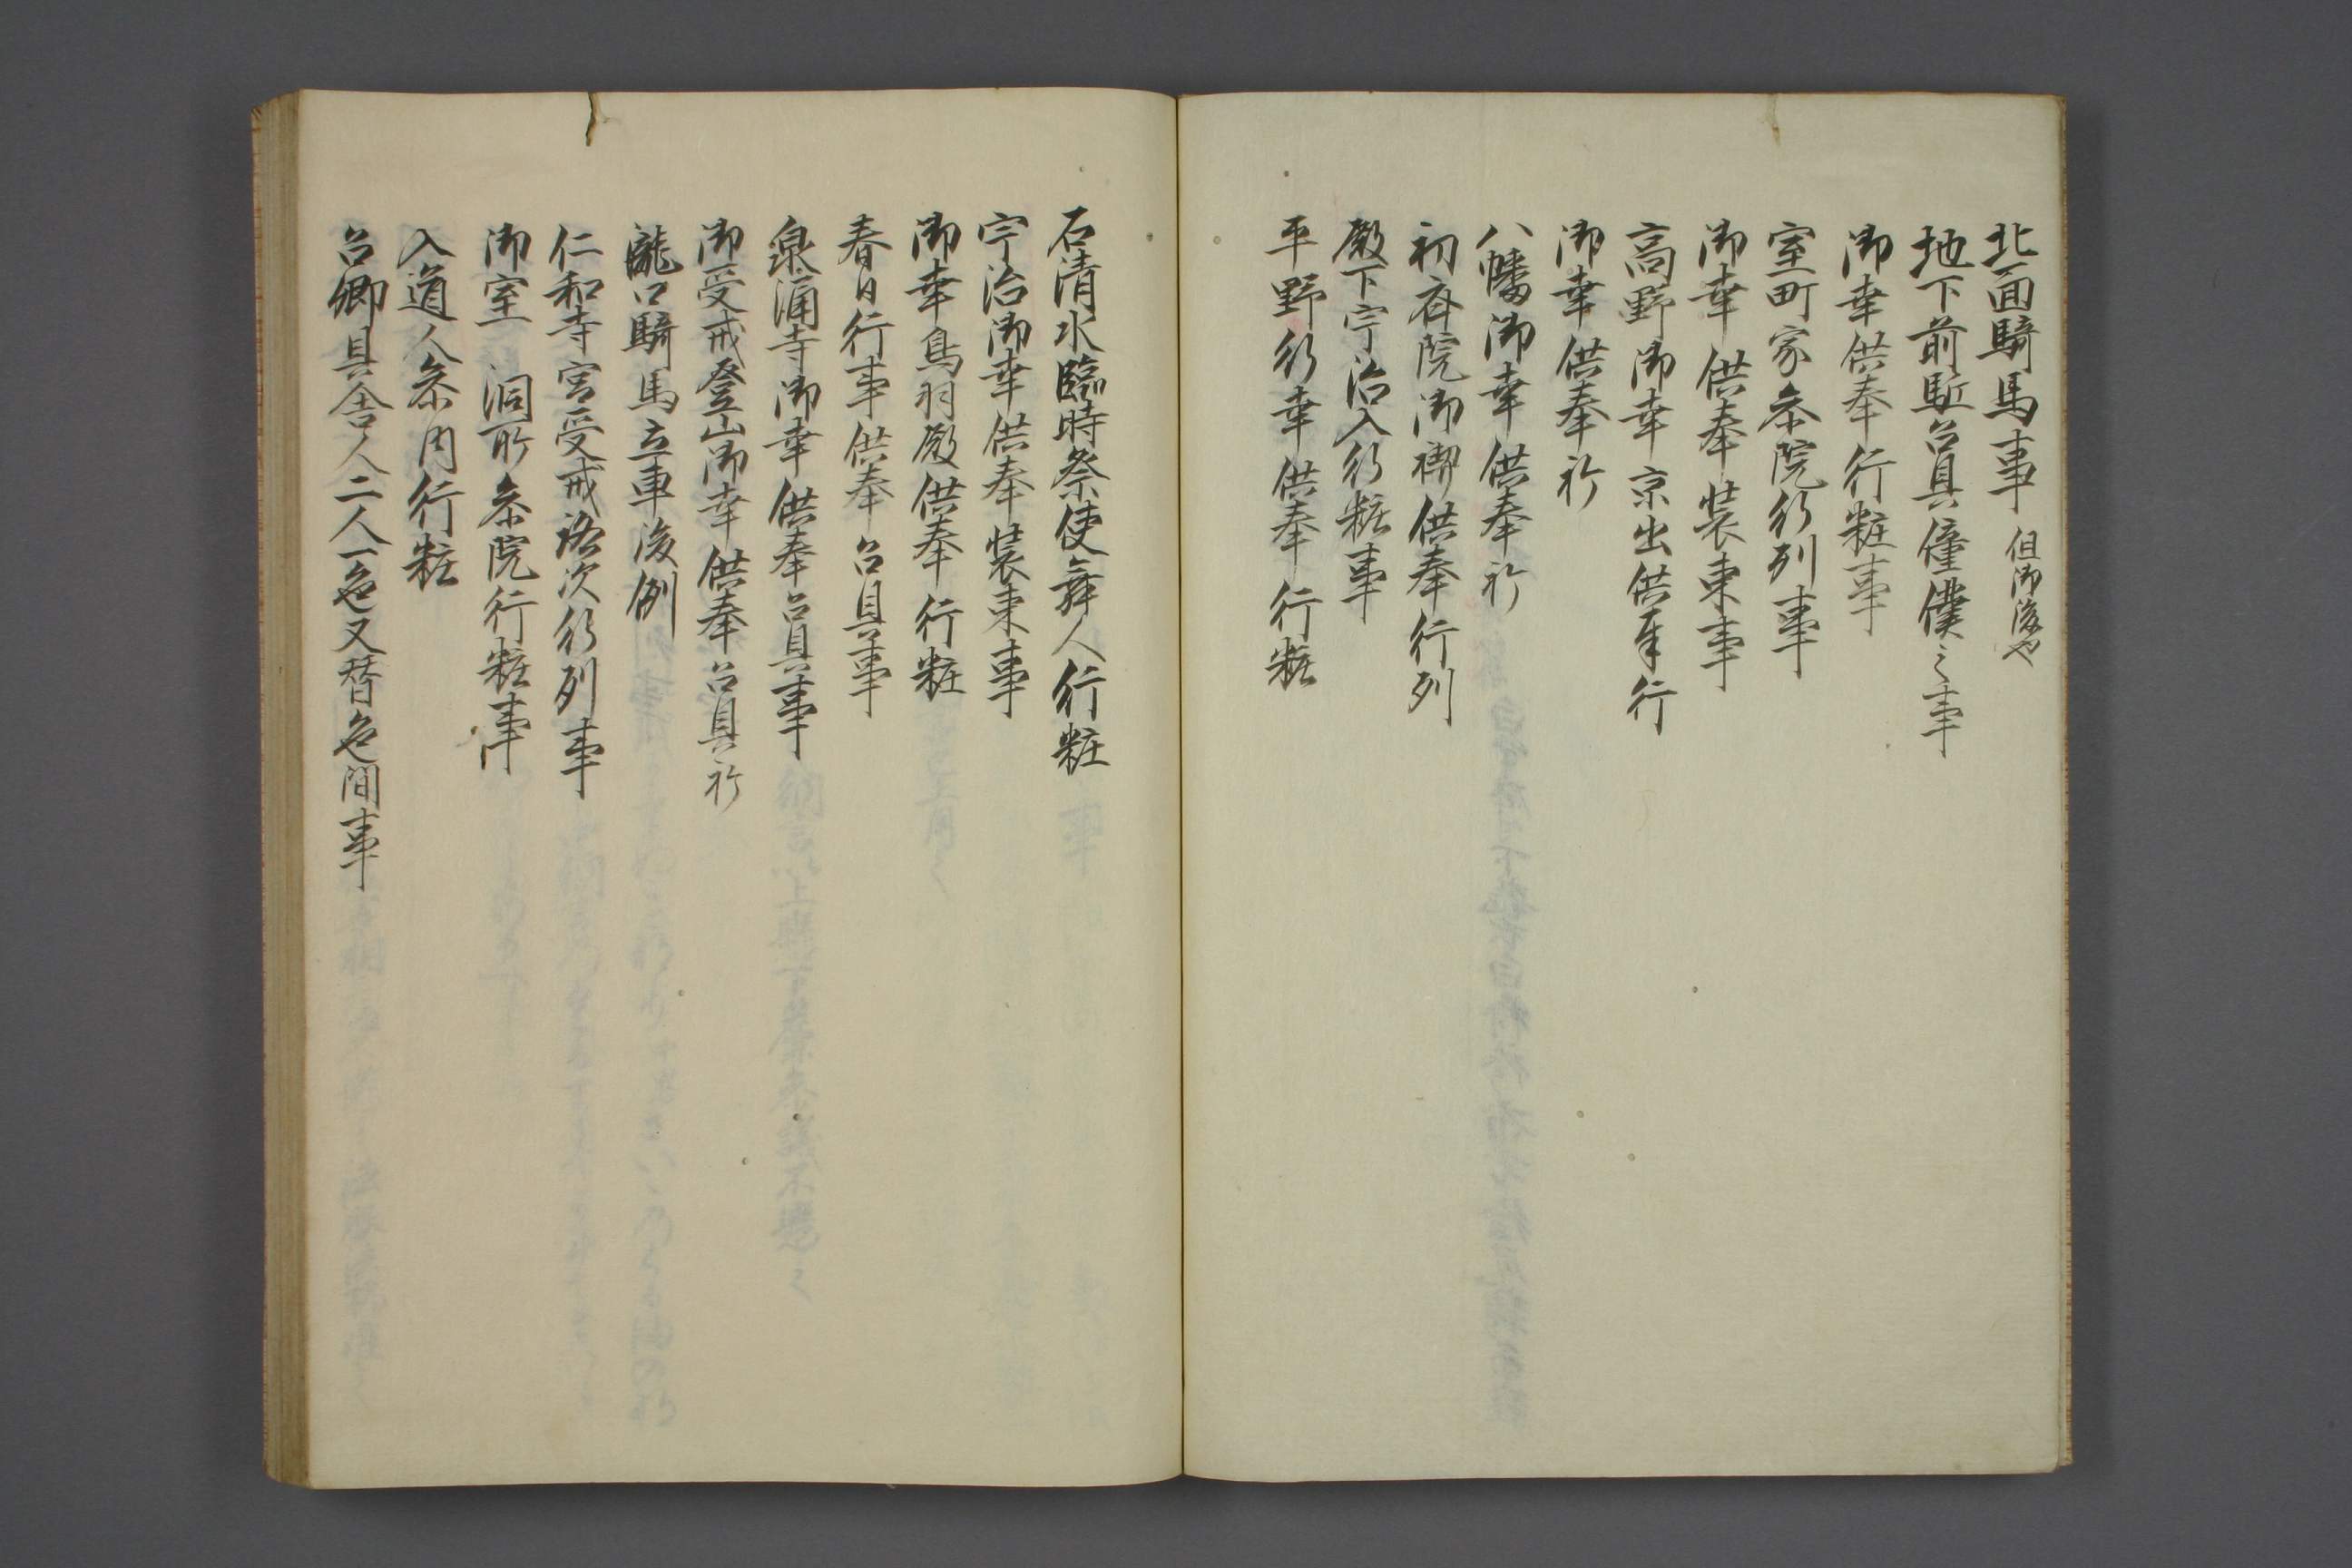 北面騎馬事 但御後也
地下前駈召具僮僕之事
御幸供奉行粧事
室町家参院行列事
御幸供奉装束事
高野御幸京出供奉行
御幸供奉行
八幡御幸供奉行
初斎院御禊供奉行列
殿下宇治入行粧事
平野行幸供奉行粧
石清水臨時祭使舞人行粧
宇治御幸供奉装束事
御幸鳥羽殿供奉行粧
春日行事供奉召具事
泉涌寺御幸供奉召具事
御受戒登山御幸供奉召具行
瀧口騎馬立車後例
仁和寺宮受戒路次行列事
御室洞所参院行粧事
入道人参内行粧
公卿具舎人二人一色又替色間事